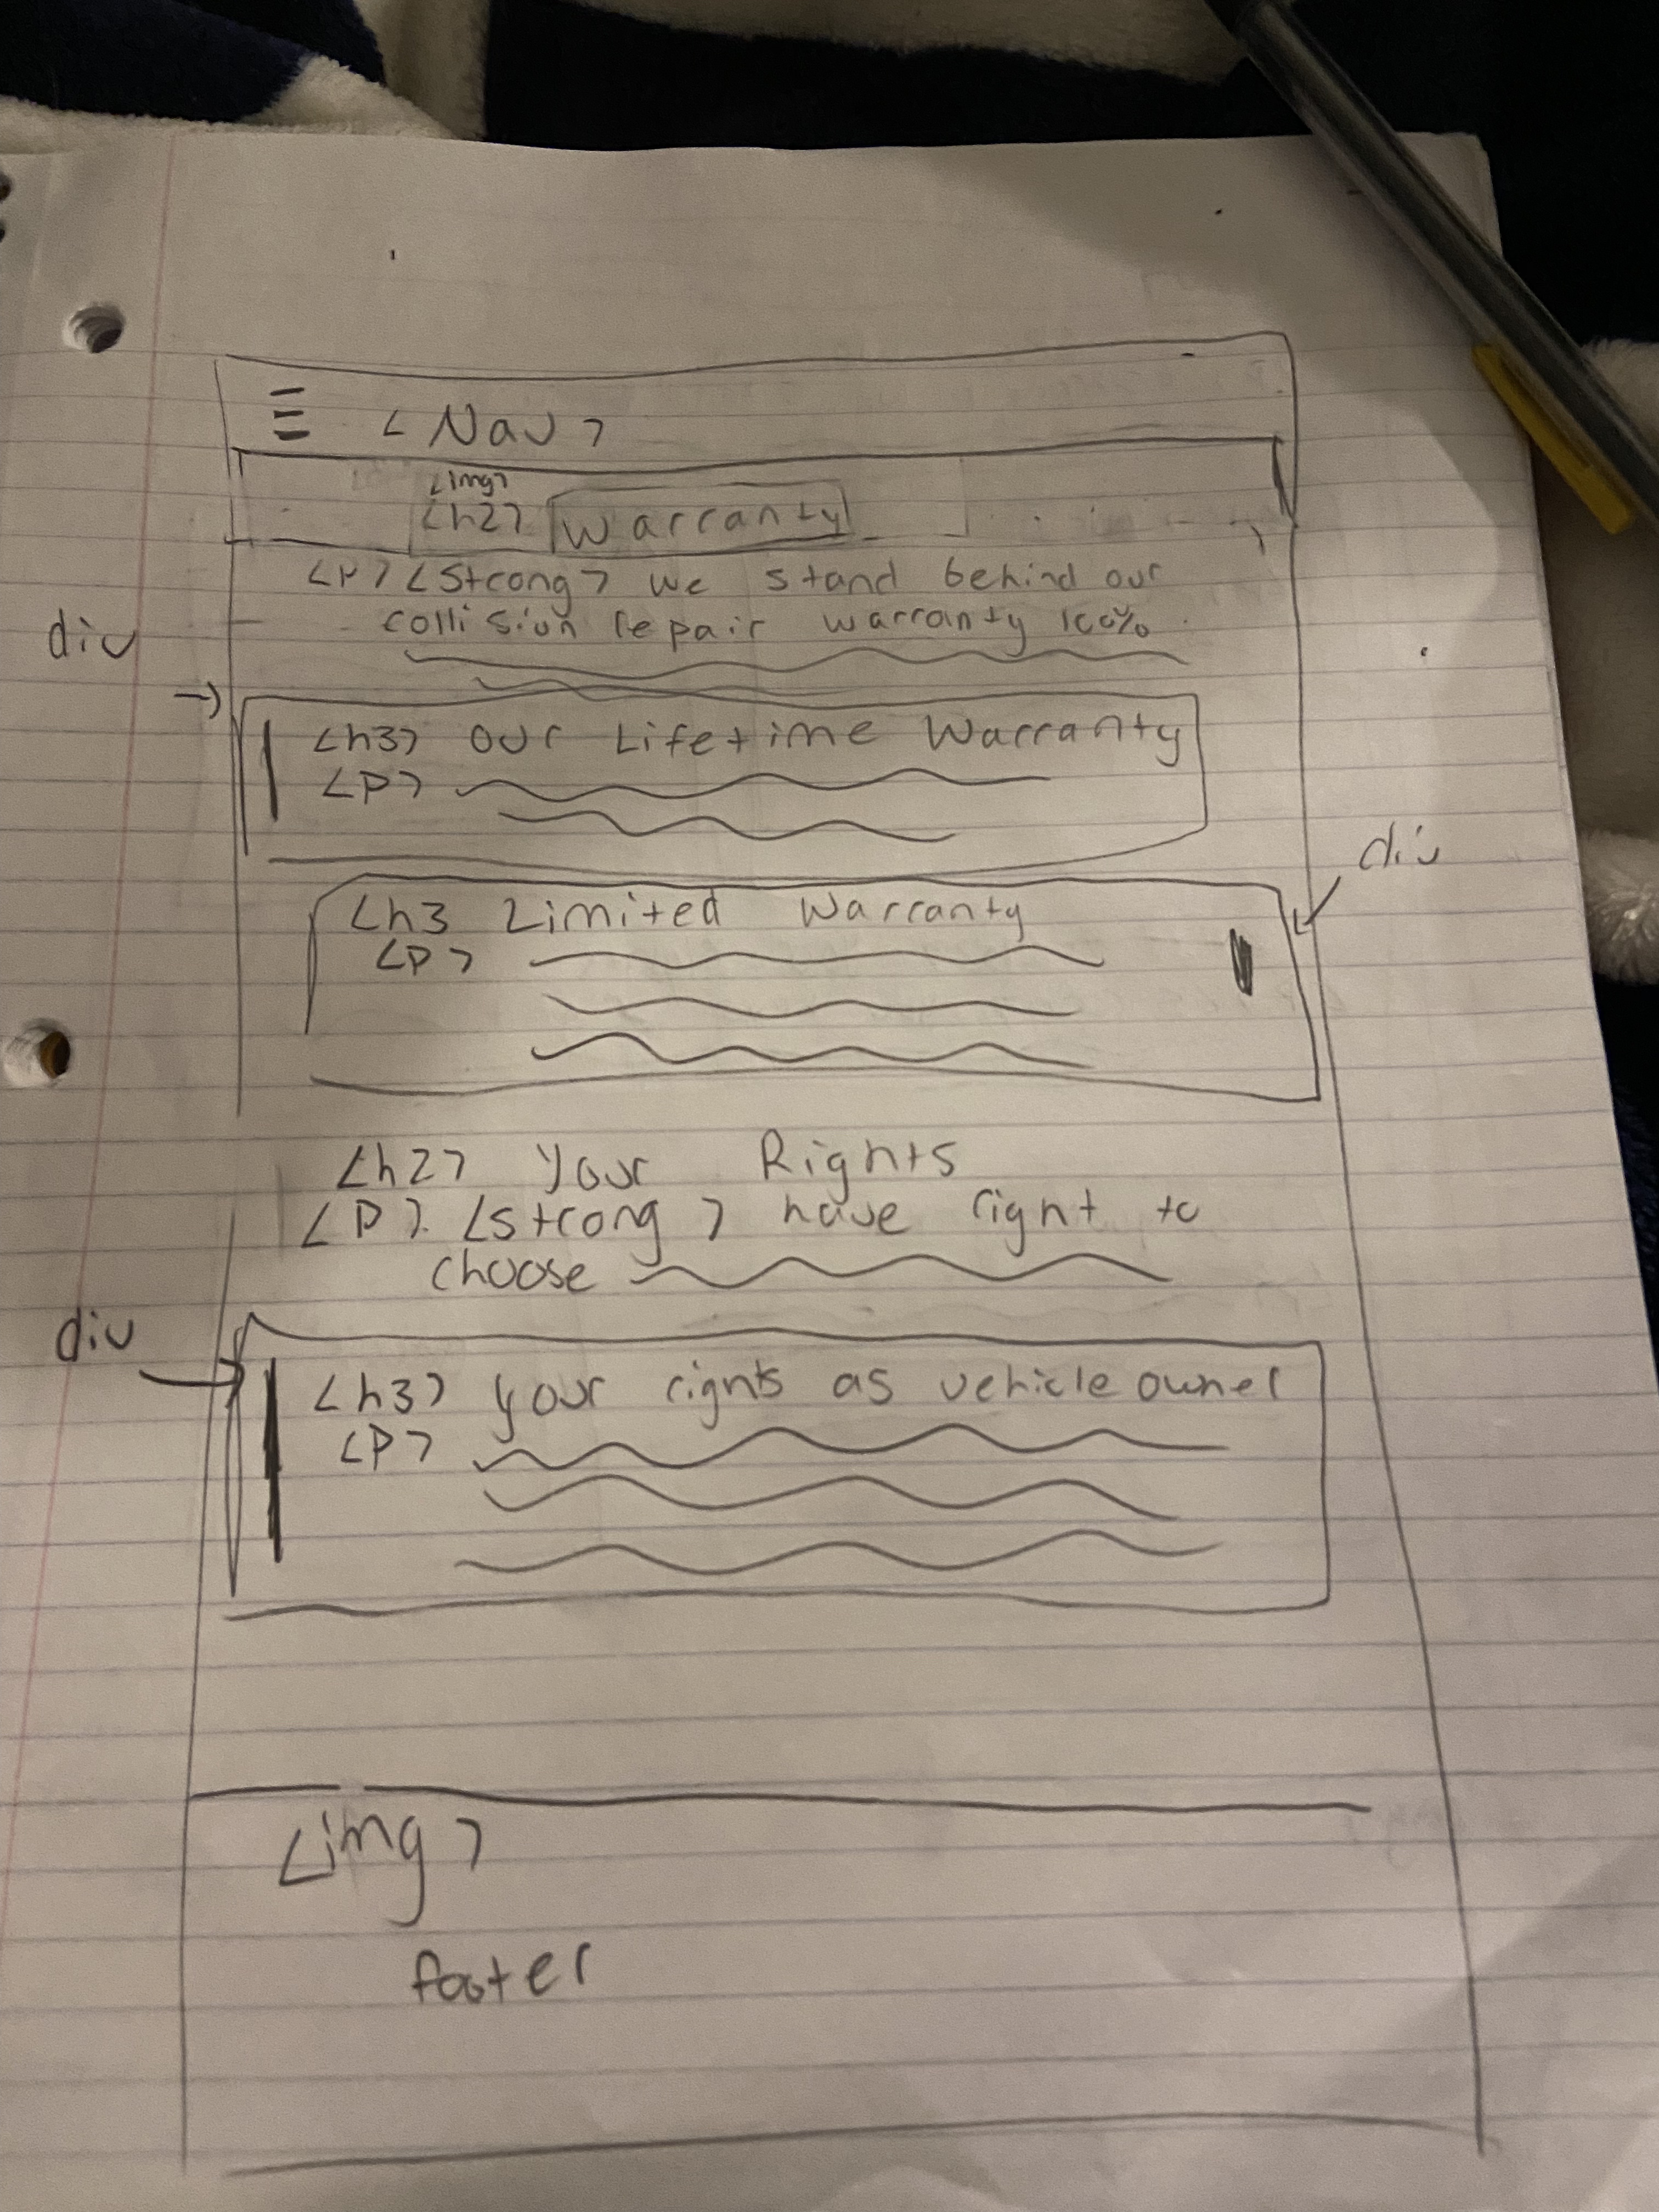 ☰ <Nav>
<img>
<h2> Warranty
<P> <Strong> we stand behind our
collision repair warranty 100%
div
<h3> our Lifetime Warranty
<P>
div
<h3 Limited Warranty
<P>
<h2> Your Rights
<P>. <strong> have right to
choose
div
<h3> your rights as vehicle owner
<P>
<img>
footer